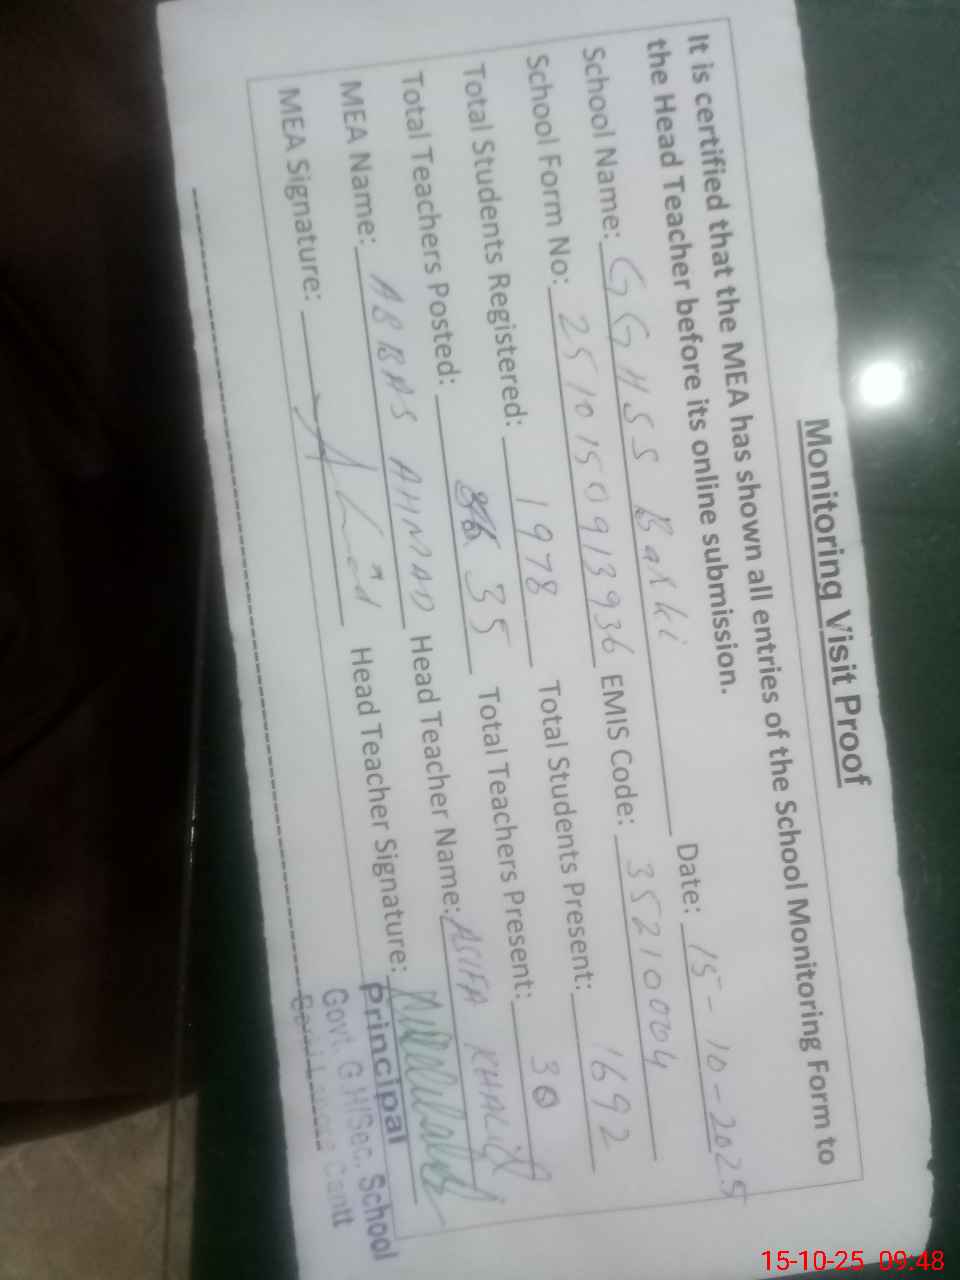 Monitoring Visit Proof
It is certified that the MEA has shown all entries of the School Monitoring Form to
the Head Teacher before its online submission.
School Name: GGHSS Barki Date: 15-10-2025
School Form No: 2510150913936 EMIS Code: 35210004
Total Students Registered: 1978 Total Students Present: 1692
Total Teachers Posted: 35 Total Teachers Present: 30
MEA Name: ABBAS AHMAD Head Teacher Name: ASIFA KHALIQ
MEA Signature: Head Teacher Signature:
Principal
Govt. G.H/Sec. School
Cantt
15-10-25 09:48